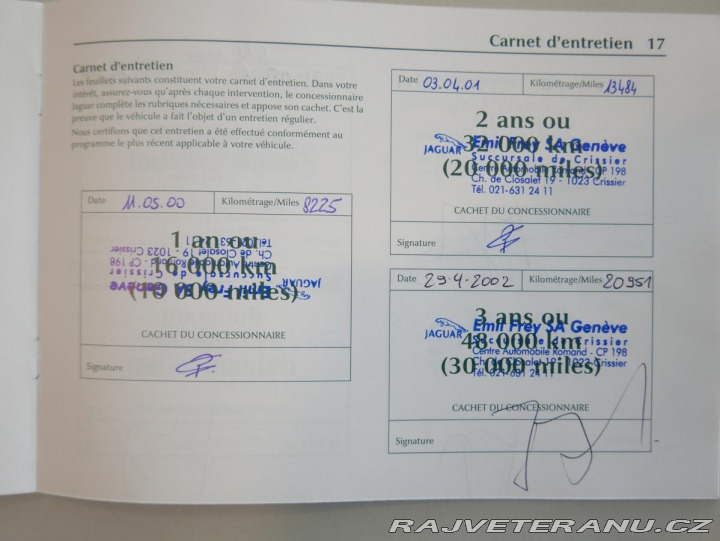 Carnet d'entretien 17
Carnet d'entretien
Les feuillets suivants constituent votre carnet d'entretien. Dans votre
intérêt, assurez-vous qu'après chaque intervention, le concessionnaire
Jaguar complète les rubriques nécessaires et appose son cachet. C'est la
preuve que le véhicule a fait l'objet d'un entretien régulier.
Nous certifions que cet entretien a été effectué conformément au
programme le plus récent applicable à votre véhicule.
Date 11.05.00 Kilométrage/Miles 8225
1 ans ou
16 000 km
(10 000 miles)
Emil Frey SA Genève
Succursale de Crissier
Centre Automobile Romand - CP 198
Ch. de Closalet 19 - 1023 Crissier
JAGUAR
CACHET DU CONCESSIONNAIRE
Signature
Date 03.04.01 Kilométrage/Miles 13484
2 ans ou
32 000 km
(20 000 miles)
JAGUAR
Emil Frey SA Genève
Succursale de Crissier
Centre Automobile Romand - CP 198
Ch. de Closalet 19 - 1023 Crissier
Tél. 021-631 24 11
CACHET DU CONCESSIONNAIRE
Signature
Date 29-4-2002 Kilométrage/Miles 20951
3 ans ou
48 000 km
(30 000 miles)
JAGUAR
Emil Frey SA Genève
Succursale de Crissier
Centre Automobile Romand - CP 198
Ch. de Closalet 19 - 1023 Crissier
Tél. 021-631 24 11
CACHET DU CONCESSIONNAIRE
Signature
RAJVETERANU.CZ